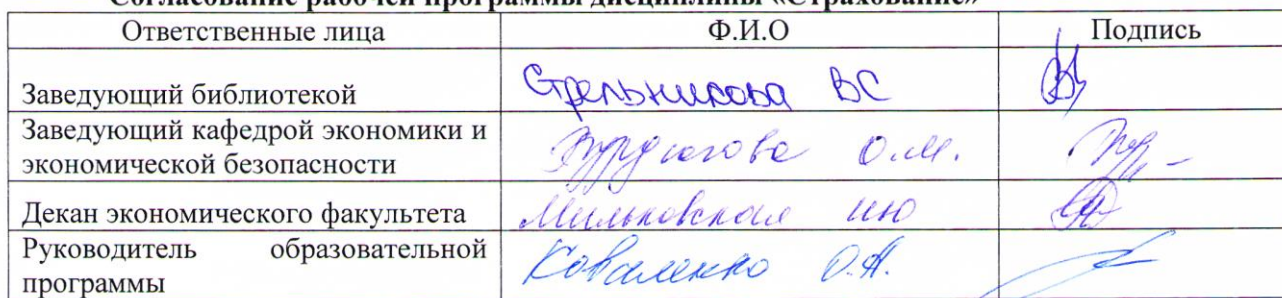 Согласование рабочей программы дисциплины «Страхование»
Ответственные лица Ф.И.О Подпись
Заведующий библиотекой Стрельникова ВС
Заведующий кафедрой экономики и
экономической безопасности О.М.
Декан экономического факультета Мильковская ИЮ
Руководитель образовательной
программы Коваленко О.А.